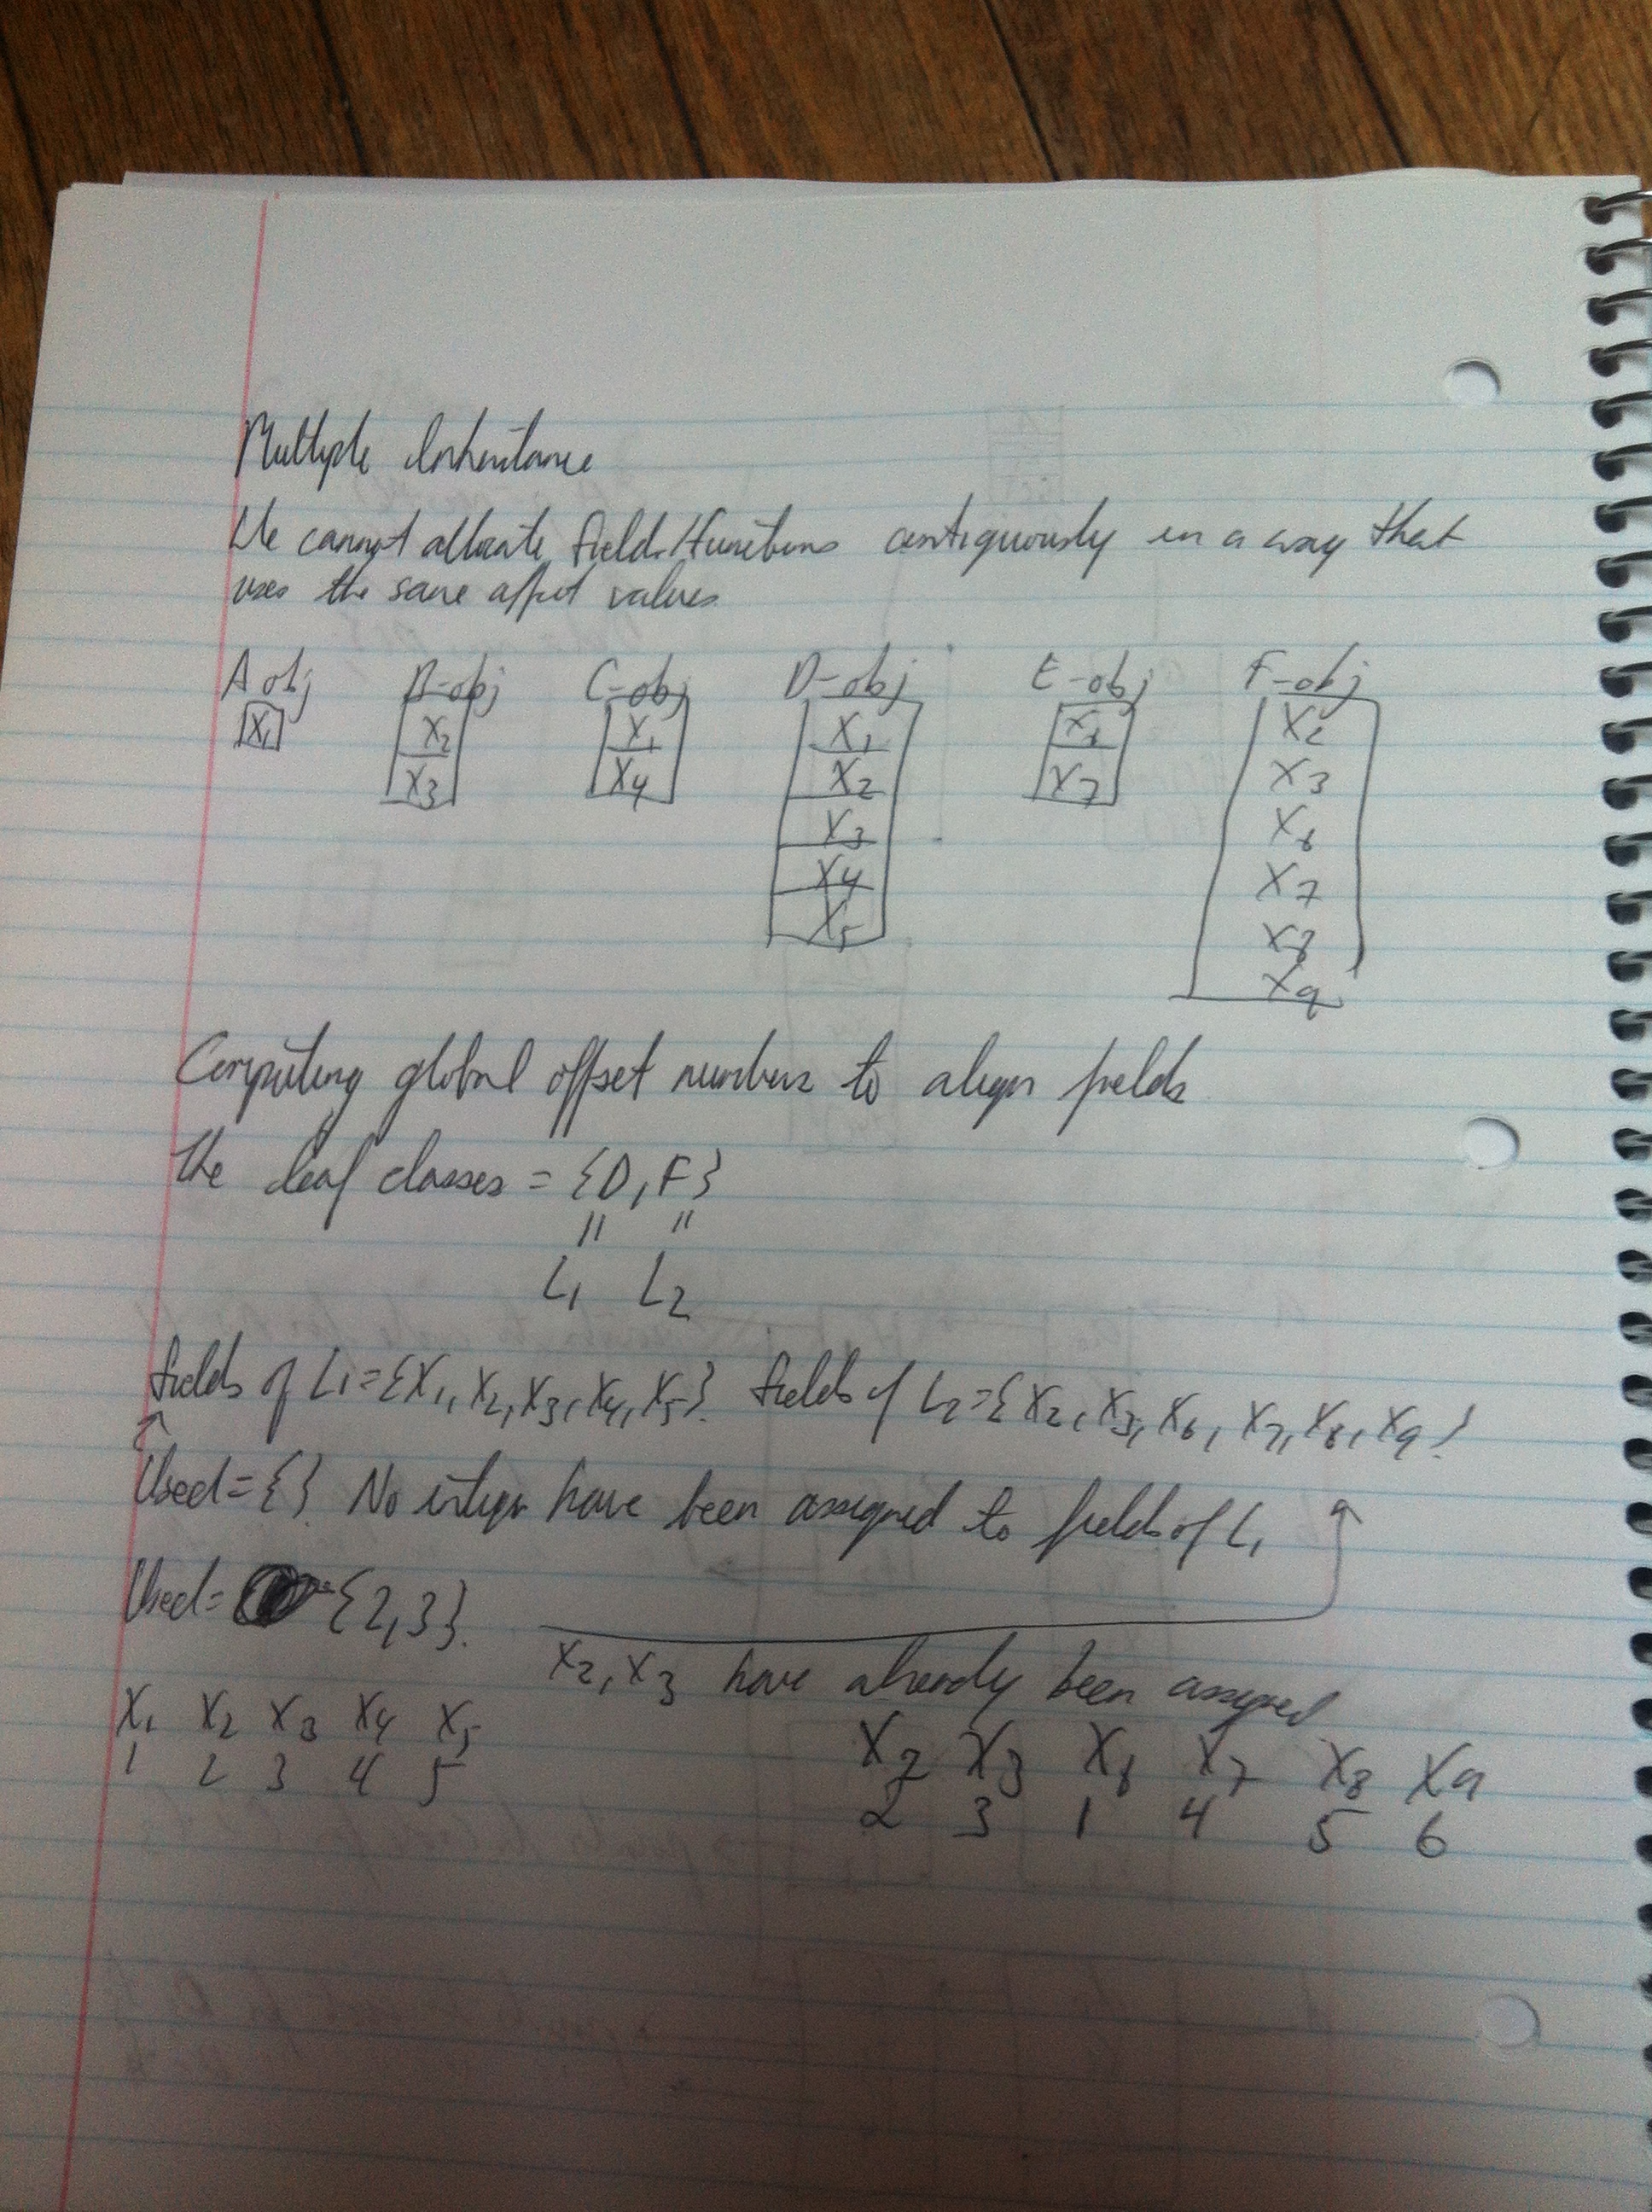 Multiple Inheritance
We cannot allocate fields/functions contiguously in a way that
uses the same offset values
A obj B-obj C-obj D-obj E-obj F-obj
X₁ X₂ X₁ X₁ X₆ X₂
X₃ X₄ X₂ X₇ X₃
X₃ X₆
X₄ X₇
X₅ X₈
X₉
Computing global offset numbers to align fields
The leaf classes = {D, F}
|| ||
L₁ L₂
fields of L₁ = {X₁, X₂, X₃, X₄, X₅}. fields of L₂ = {X₂, X₃, X₆, X₇, X₈, X₉}
Used = {}. No integer have been assigned to fields of L₁
Used = {2,3}.
X₂, X₃ have already been assigned
X₁ X₂ X₃ X₄ X₅
1 2 3 4 5
X₂ X₃ X₆ X₇ X₈ X₉
2 3 1 4 5 6